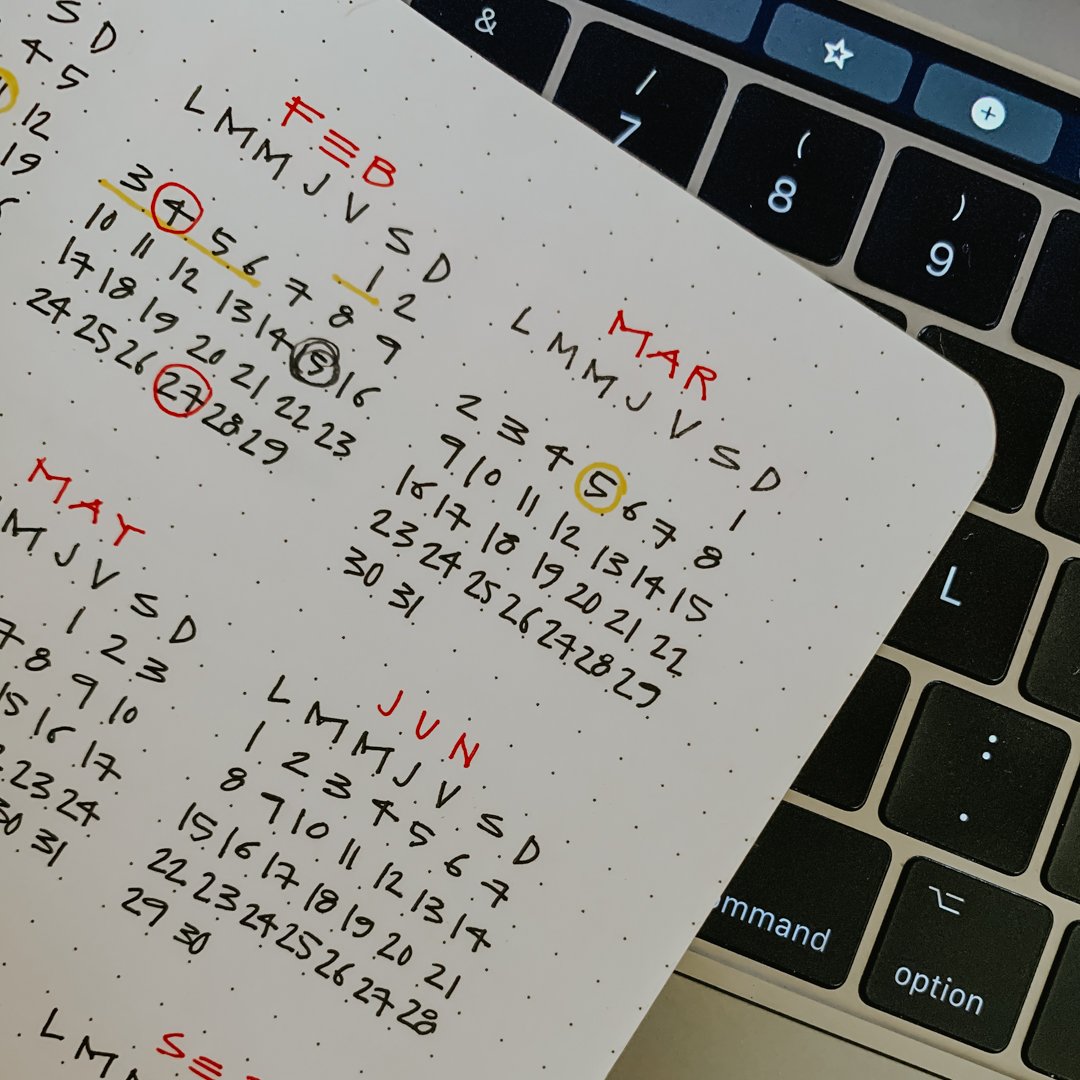 S D
4 5
11 12
19
FEB
L M M J V S D
1 2
3 4 5 6 7 8 9
10 11 12 13 14 15 16
17 18 19 20 21 22 23
24 25 26 27 28 29
MAR
L M M J V S D
1
2 3 4 5 6 7 8
9 10 11 12 13 14 15
16 17 18 19 20 21 22
23 24 25 26 27 28 29
30 31
MAY
M J V S D
1 2 3
7 8 9 10
15 16 17
23 24
30 31
JUN
L M M J V S D
1 2 3 4 5 6 7
8 9 10 11 12 13 14
15 16 17 18 19 20 21
22 23 24 25 26 27 28
29 30
L M
&
/
7
(
8
)
9
L
:
.
option